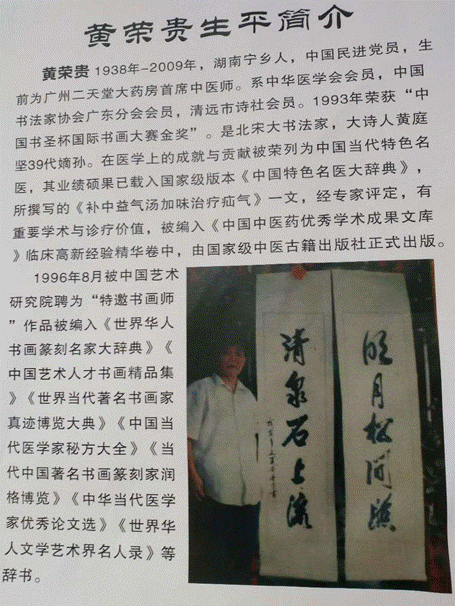 黄荣贵生平简介
黄荣贵 1938年-2009年，湖南宁乡人，中国民进党员，生
前为广州二天堂大药房首席中医师。系中华医学会会员，中国
书法家协会广东分会会员，清远市诗社会员。1993年荣获“中
国书圣杯国际书画大赛金奖”。是北宋大书法家，大诗人黄庭
坚39代嫡孙。在医学上的成就与贡献被荣列为中国当代特色名
医，其业绩硕果已载入国家级版本《中国特色名医大辞典》，
所撰写的《补中益气汤加味治疗疝气》一文，经专家评定，有
重要学术与诊疗价值，被编入《中国中医药优秀学术成果文库
》临床高新经验精华卷中，由国家级中医古籍出版社正式出版。
1996年8月被中国艺术
研究院聘为“特邀书画师
”作品被编入《世界华人
书画篆刻名家大辞典》《
中国艺术人才书画精品集
》《世界当代著名书画家
真迹博览大典》《中国当
代医学家秘方大全》《当
代中国著名书画篆刻家润
格博览》《中华当代医学
家优秀论文选》《世界华
人文学艺术界名人录》等
辞书。
明月松间照
清泉石上流